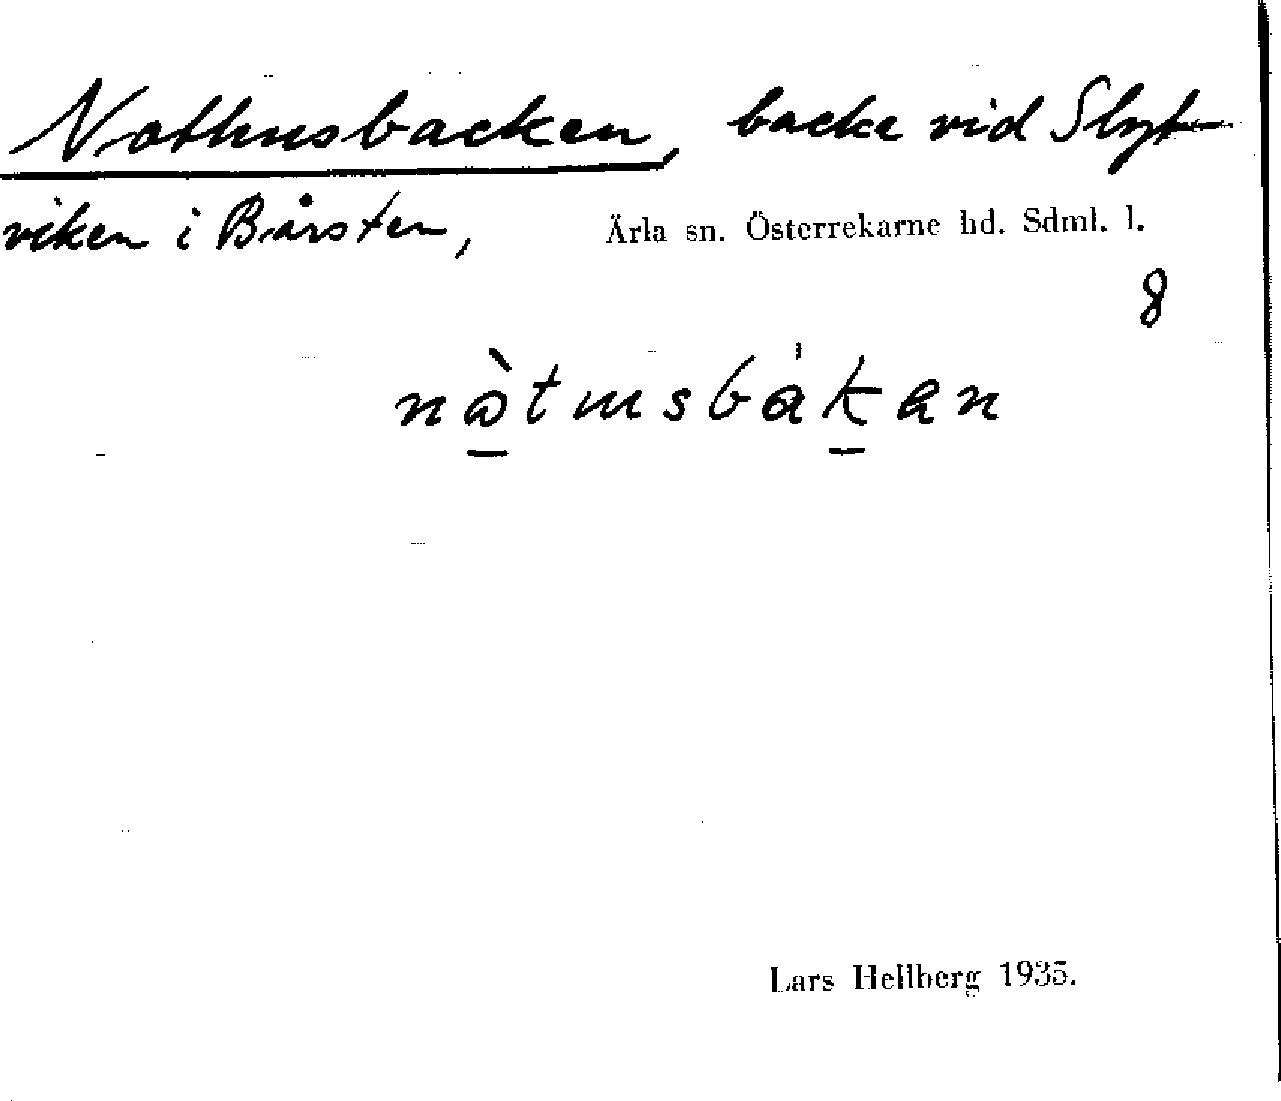 Nothusbacken, backe vid Slyt-
viken i Bårsten, Ärla sn. Österrekarne hd. Sdml. l.
8
Lars Hellberg 1935.